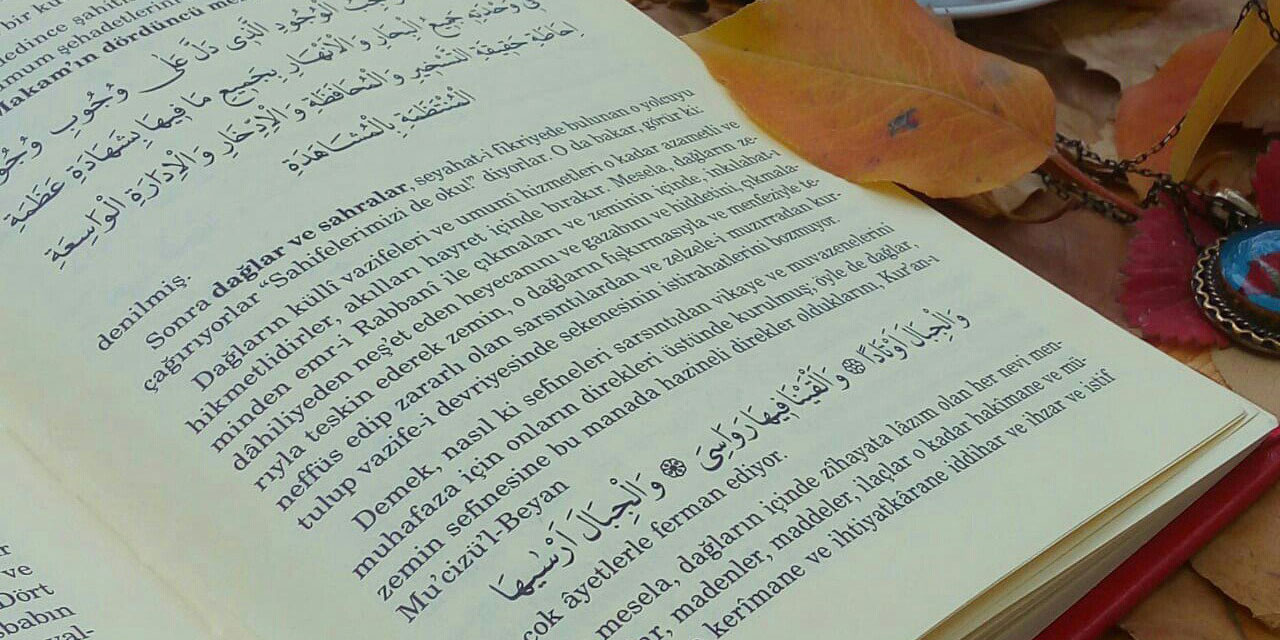 bir
ledince
umum şehadetlerini
Makam'ın dördüncü
الْوُجُودِ الَّذِى دَلَّ عَلٰى وُجُوبِ
وَحْدَتِهِ جَمِيعُ الْبِحَارِ وَالْاَنْهَارِ بِجَمِيعِ مَا فِيهَا بِشَهَادَةِ عَظَمَةِ
اِحَاطَةِ حَقِيقَةِ التَّسْخِيرِ وَالْمُحَافَظَةِ وَالْاِدِّخَارِ وَالْاِدَارَةِ الْوَاسِعَةِ
الْمُنْتَظَمَةِ بِالْمُشَاهَدَةِ
denilmiş.
Sonra dağlar ve sahralar, seyahat-i fikriyede bulunan o yolcuyu
çağırıyorlar "Sahifelerimizi de oku!" diyorlar. O da bakar, görür ki:
Dağların küllî vazifeleri ve umumi hizmetleri o kadar azametli ve
hikmetlidirler, akılları hayret içinde bırakır. Mesela, dağların ze-
minden emr-i Rabbanî ile çıkmaları ve zeminin içinde, inkılabat-ı
dâhiliyeden neş'et eden heyecanını ve gazabını ve hiddetini, çıkmala-
rıyla teskin ederek zemin, o dağların fışkırmasıyla ve menfeziyle te-
neffüs edip zararlı olan sarsıntılardan ve zelzele-i muzırradan kur-
tulup vazife-i devriyesinde sekenesinin istirahatlerini bozmuyor.
Demek, nasıl ki sefineleri sarsıntıdan vikaye ve muvazenelerini
muhafaza için onların direkleri üstünde kurulmuş; öyle de dağlar,
zemin sefinesine bu manada hazineli direkler olduklarını, Kur'an-ı
Mu'cizü'l-Beyan
وَالْجِبَالَ اَوْتَادًا ۞ وَاَلْقَيْنَا فِيهَا رَوَاسِىَ ۞ وَالْجِبَالَ اَرْسٰيهَا
çok âyetlerle ferman ediyor.
mesela, dağların içinde zîhayata lâzım olan her nevi men-
ar, madenler, maddeler, ilaçlar o kadar hakîmane ve mü-
kerîmane ve ihtiyatkârane iddihar ve ihzar ve istif
ve
Dört
sbabın
yal-